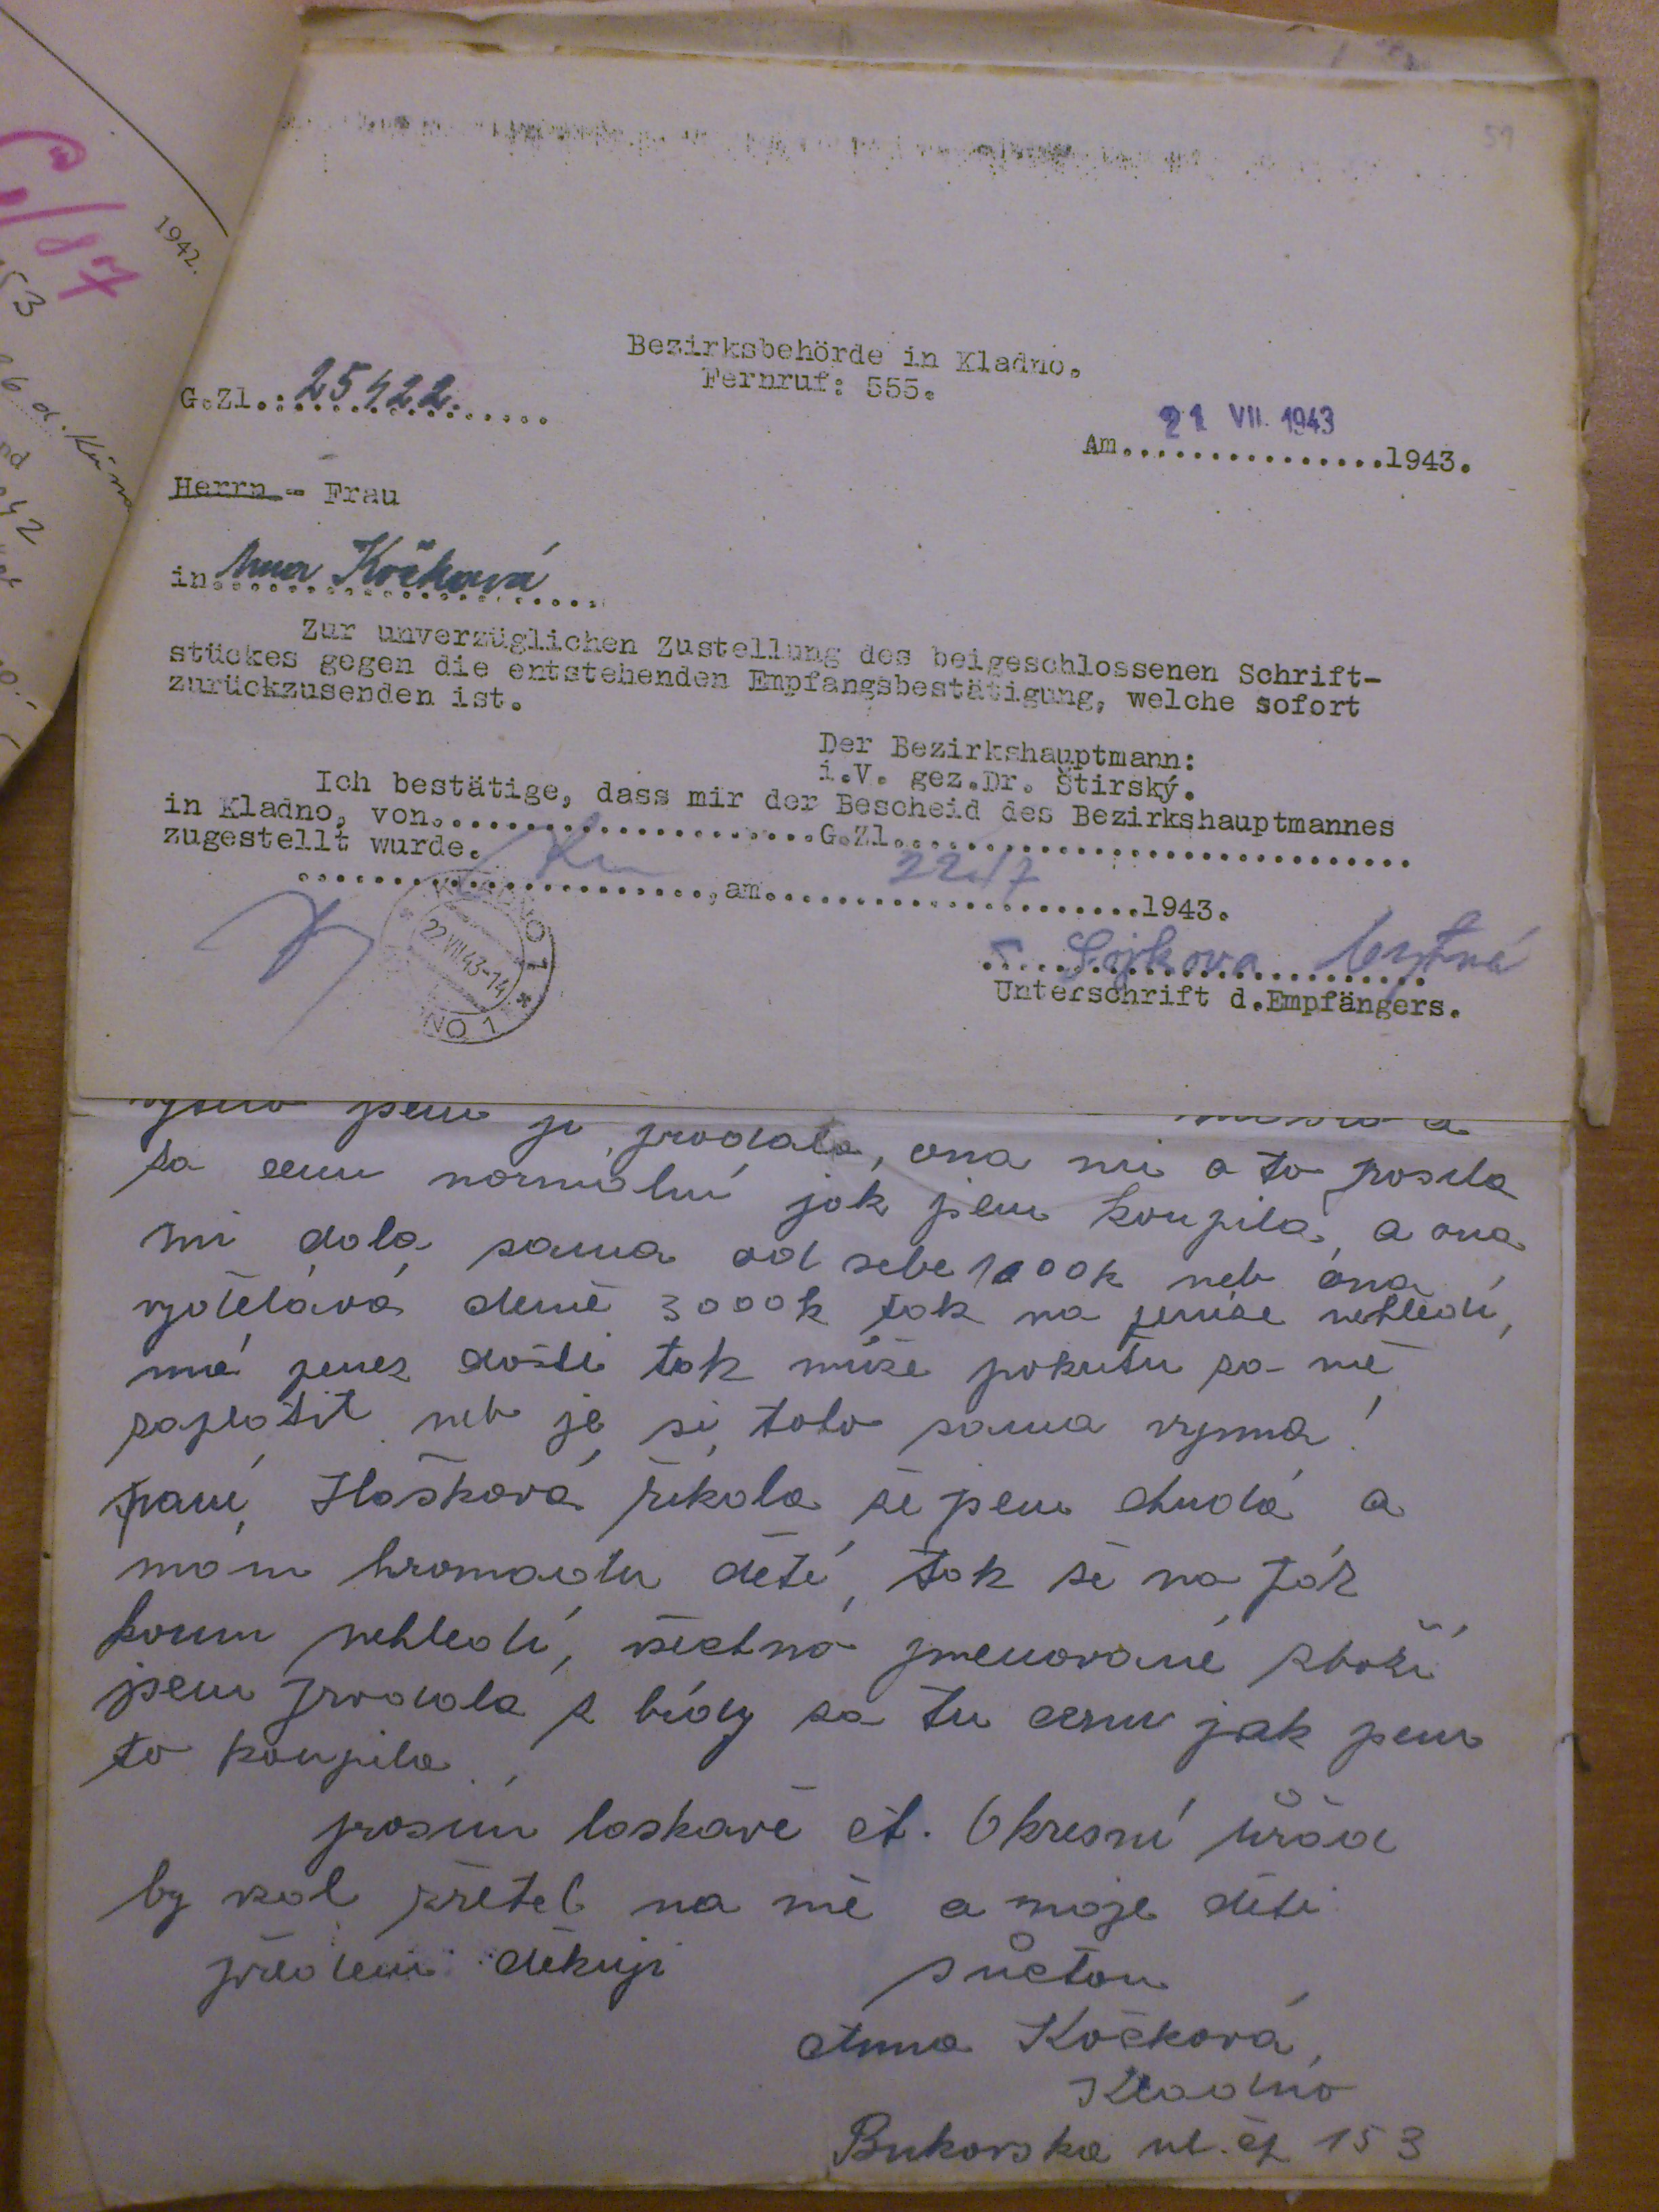 59
1942.
53
Bezirksbehörde in Kladno.
Fernruf: 555.
G.Zl.: 25422.
21 VII. 1943
Am................1943.
Herrn - Frau
in Anna Kočková
Zur unverzüglichen Zustellung des beigeschlossenen Schrift-
stückes gegen die entstehenden Empfangsbestätigung, welche sofort
zurückzusenden ist.
Der Bezirkshauptmann:
i.V. gez.Dr. Štirský.
Ich bestätige, dass mir der Bescheid des Bezirkshauptmannes
in Kladno, von......................G.Zl..............................
zugestellt wurde.
........................,am 22./7 1943.
KLADNO 1
22.VII.43-14
Sojkova
Unterschrift d.Empfängers.
jsem ji prodala, ona mi a to poslala
za cenu normální jak jsem koupila, a ona
mi dala sama od sebe 1000k neb ona
vydělává deně 3000k tak na peníze nehledí,
má peněz dosti tak může pokutu za mě
zaplatit neb je si toho sama vinna!
paní Hašková říkala že jsem chudá a
mám hromadu dětí, tak se na pár
korun nehledí, všechno jmenované zboží
jsem prodala z bídy za tu cenu jak jsem
to koupila.
prosím laskavě ct. Okresní úřad
by vzal zřetel na mě a moje děti
předem děkuji
s úctou
Anna Kočková,
Kladno
Bukovska ul. čp 153